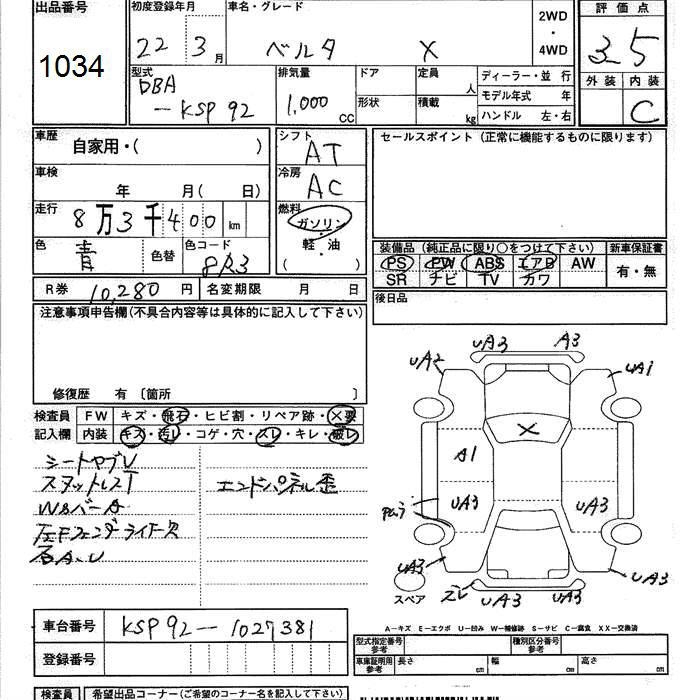 出品番号 初度登録年月 車名・グレード 2WD・4WD 評価点
1034 22 3月 ベルタ X 3.5
型式 排気量 ドア 定員 人 ディーラー・並行 外装 内装
DBA-KSP92 1,000 CC 形状 積載 kg モデル年式 年 C
ハンドル 左・右
車歴 自家用・( ) シフト AT セールスポイント (正常に機能するものに限ります)
車検 年 月( 日) 冷房 AC
走行 8万3千400km 燃料 ガソリン・軽・油 ( )
色 青 色替 色コード 8R3
装備品 (純正品に限り○をつけて下さい) 新車保証書
PS PW ABS エアB AW 有・無
SR ナビ TV カワ
R券 10,280円 名変期限 月 日 後日品
注意事項申告欄(不具合内容等は具体的に記入して下さい)
修復歴 有 〔箇所 〕
検査員 FW キズ・飛石・ヒビ割・リペア跡・X要
記入欄 内装 キズ・汚レ・コゲ・穴・スレ・キレ・破レ
シートヤブレ
スタットレスT エンドパネル歪
WSバーA
左Fフェンダーライナー欠
UA3 A3
UA2 UA1
X
A1
UA3 UA3
UA3 UA3
スペア スレ UA3 UA3
A−キズ E−エクボ U−凹み W−補修跡 S−サビ C−腐食 XX−交換済
車台番号 KSP92-1027381
登録番号
型式指定番号 参考 種別区分番号 参考
車庫証明用 参考 長さ cm 幅 cm 高さ cm
検査員 希望出品コーナー(ご希望のコーナー名を記入下さい)